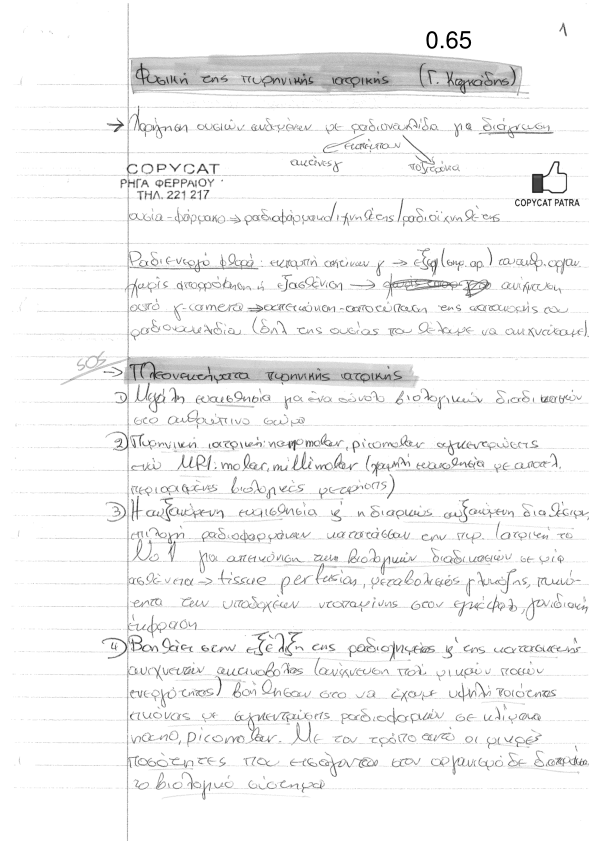 0.65
1
Φυσική της πυρηνικής ιατρικής (Γ. Καγκάδης)
→ Χορήγηση ουσιών ενδεμένων με ραδιονουκλίδια για διάγνωση
εκπέμπουν
ακτίνες γ ποζιτρόνια
COPYCAT
ΡΗΓΑ ΦΕΡΡΑΙΟΥ
ΤΗΛ. 221 217
COPYCAT PATRA
ουσία-φάρμακο → ραδιοφάρμακο/ιχνηθέτης/ραδιοϊχνηθέτης
Ραδιενεργό φθορά: εκπομπή ακτίνων γ → εξέρ
χωρίς απορρόφηση ή εξασθένιση → ανίχνευση
από γ-camera → απεικόνιση-αποτύπωση της κατανομής του
ραδιονουκλιδίου (δηλ της ουσίας που θέλαμε να ανιχνεύσουμε).
SOS
→ Πλεονεκτήματα πυρηνικής ιατρικής
1) Μεγάλη ευαισθησία για ένα σύνολο βιολογικών διαδικασιών
στο ανθρώπινο σώμα
2) Πυρηνική ιατρική: nanomolar, picomolar συγκεντρώσεις
ενώ MRI: molar, millimolar (χαμηλή ευαισθησία με αποτέλ.
περιορισμένες βιολογικές μετρήσεις)
3) Η αυξανόμενη ευαισθησία & η διαρκώς αυξανόμενη διαθέσιμη
επιλογή ραδιοφαρμάκων κατατάσσουν την πυρ. Ιατρική το
Νο 1 για απεικόνηση των βιολογικών διαδικασιών σε μία
ασθένεια → tissue perfusion, μεταβολισμός γλυκόζης, πυκνό-
τητα των υποδοχέων ντοπαμίνης στον εγκέφαλο, γονιδιακή
έκφραση
4) Βοηθάει στην εξέλιξη της ραδιοχημείας & της κατασκευής
ανιχνευτών ακτινοβολίας (ανίχνευση πολ. μικρών ποσών
ενεργότητας) βοήθησαν στο να έχουμε υψηλή ποιότητας
εικόνας με συγκεντρώσεις ραδιοφαρμ. σε κλίμακα
nano, picomolar. Με τον τρόπο αυτό οι μικρές
ποσότητες που εισάγονται στον οργανισμό δε
το βιολογικό σύστημα